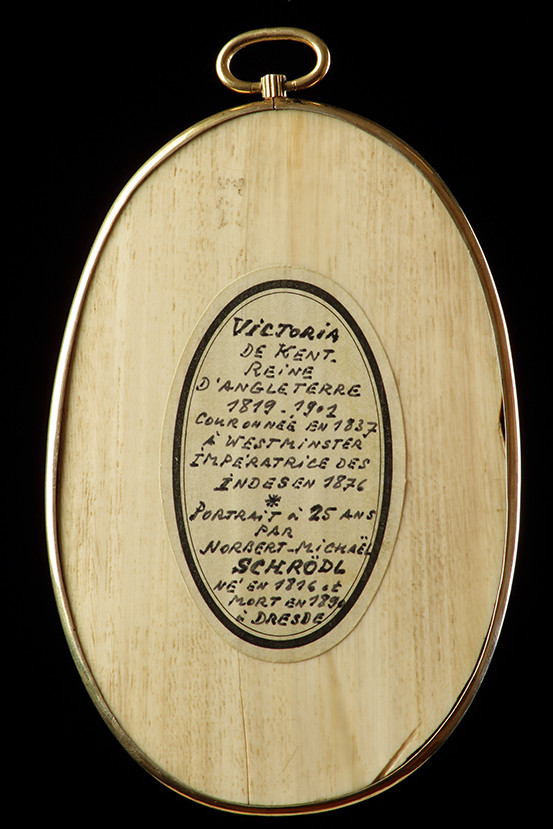 VICTORIA
DE KENT.
REINE
D'ANGLETERRE
1819-1901
COURONNÉE EN 1837
À WESTMINSTER
IMPÉRATRICE DES
INDES EN 1876
*
PORTRAIT à 25 ANS
PAR
NORBERT-MICHAËL
SCHRÖDL
NÉ EN 1816 et
MORT EN
à DRESDE